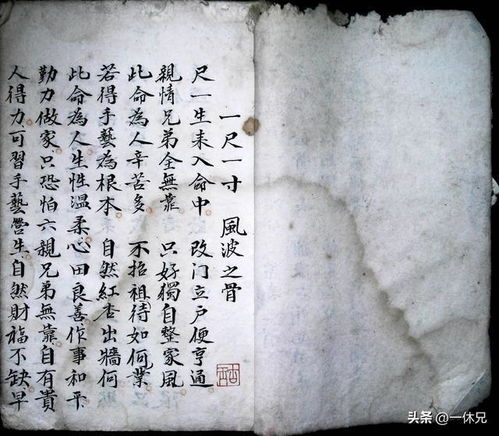 一尺一寸 風波之骨
尺一生耒入命中 改门立戸便亨通
親情兄弟全無靠 只好獨自整家風
此命為人辛苦多 不招祖待如何業
若得手藝為根本 自然紅杏出牆何
此命為人生性温柔心田良善作事和平
勤力做家只恐怕六親兄弟無靠自有貴
人得力可習手藝营生自然財福不缺早
头条 @一休兄